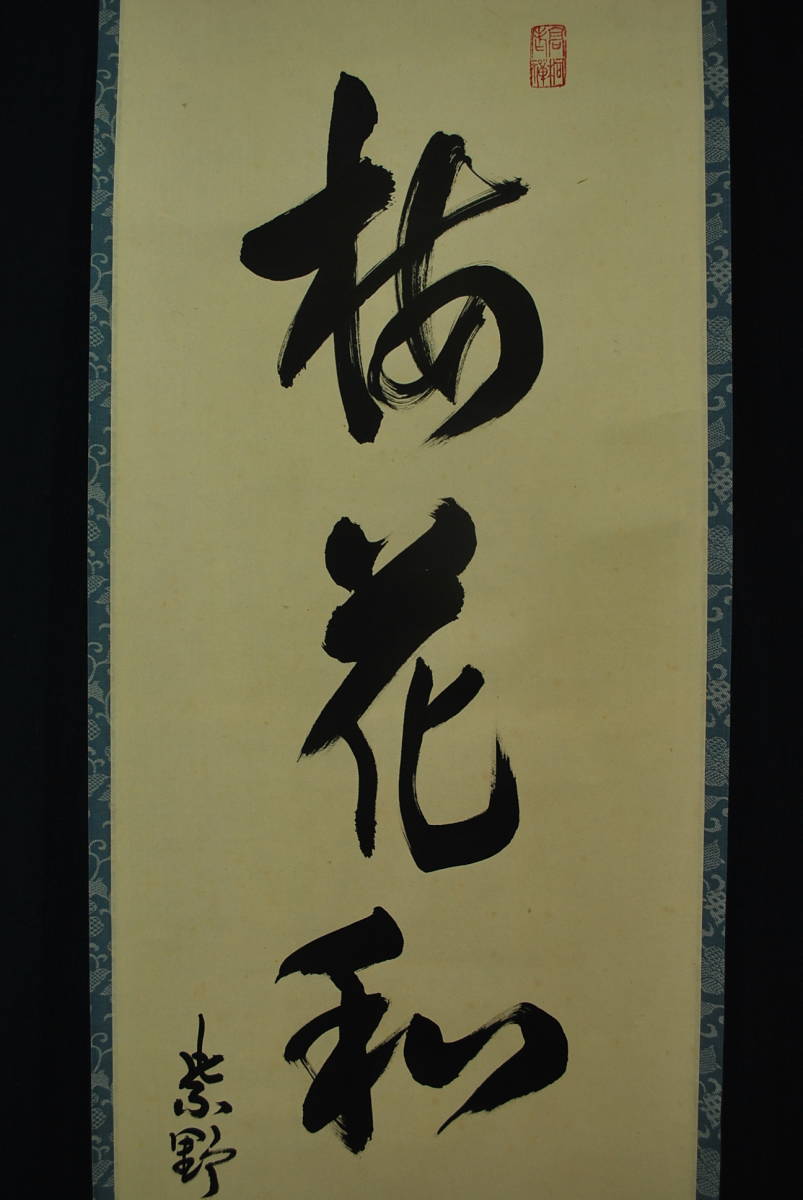 梅花和
紫野